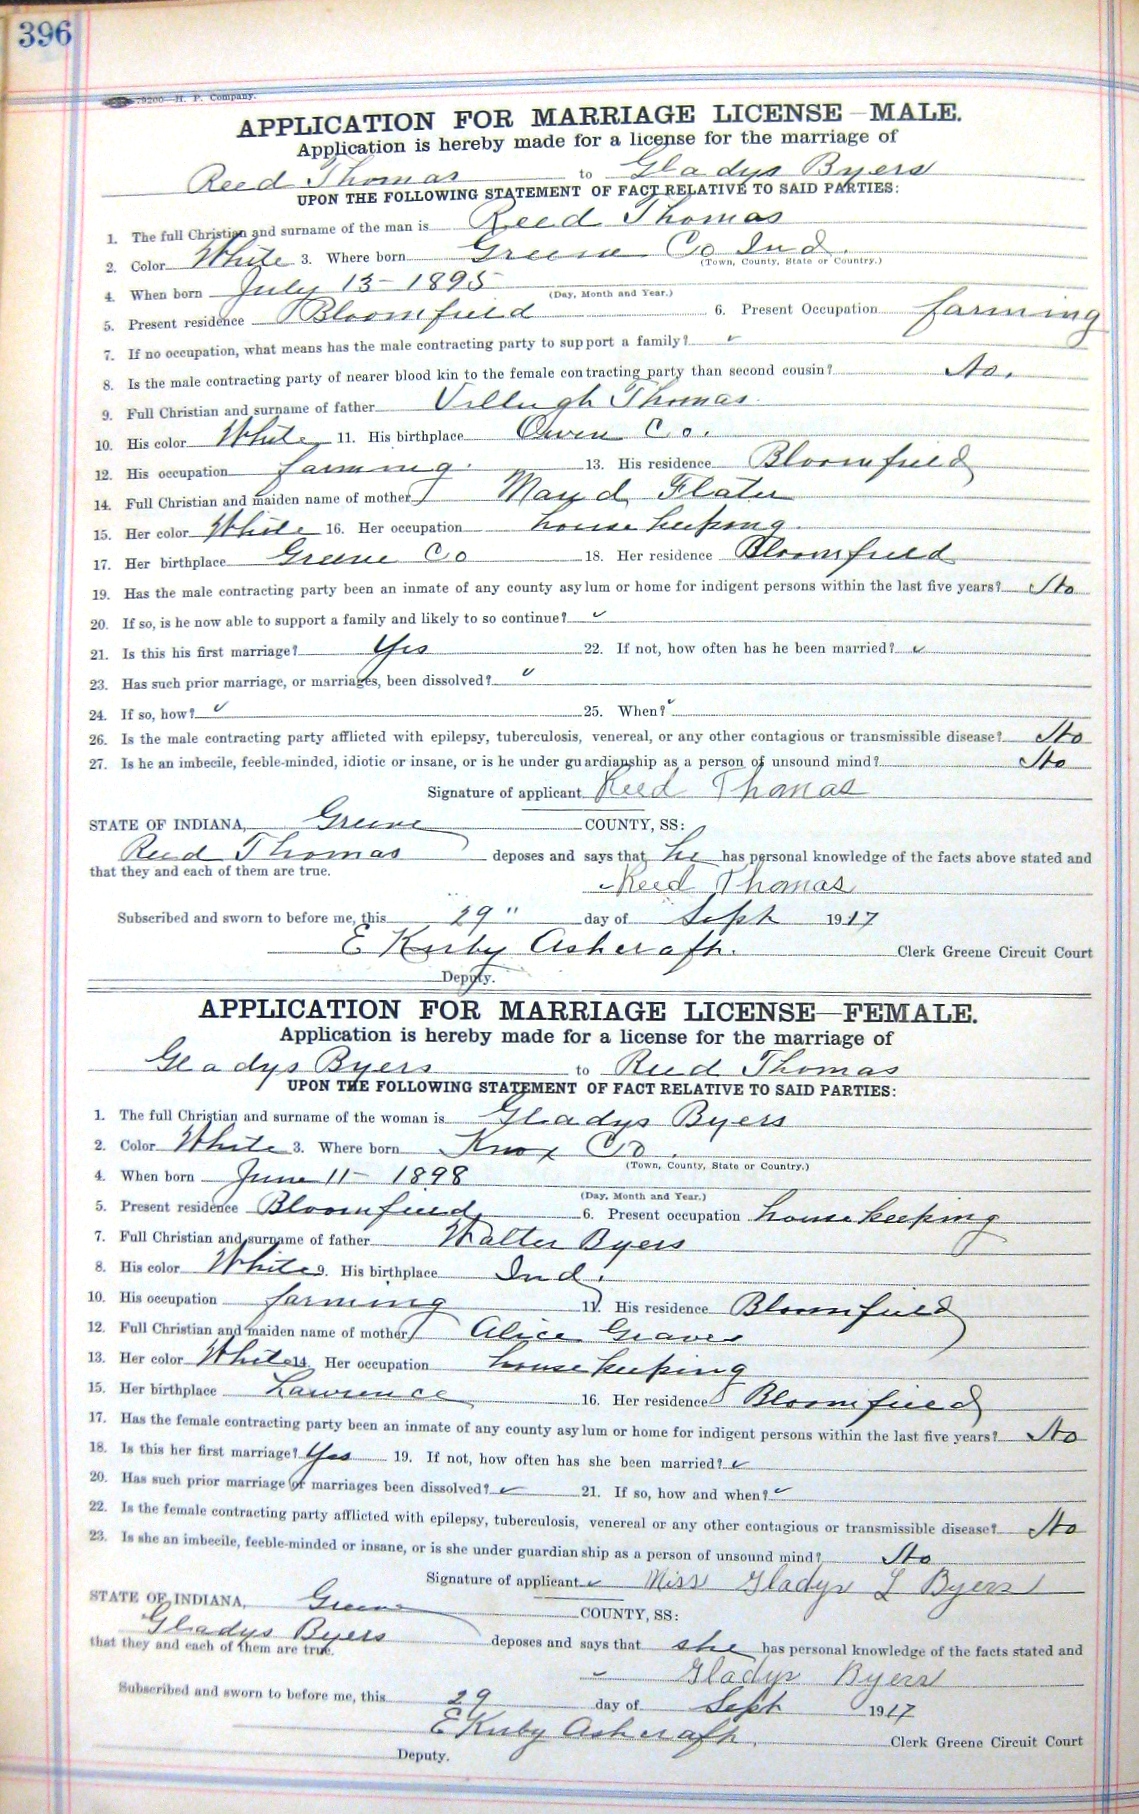 396
9200—H. P. Company.
APPLICATION FOR MARRIAGE LICENSE—MALE.
Application is hereby made for a license for the marriage of
Reed Thomas to Gladys Byers
UPON THE FOLLOWING STATEMENT OF FACT RELATIVE TO SAID PARTIES:
1. The full Christian and surname of the man is Reed Thomas
2. Color White 3. Where born Greene Co Ind.
(Town, County, State or Country.)
4. When born July 13 - 1895
(Day, Month and Year.)
5. Present residence Bloomfield 6. Present Occupation farming
7. If no occupation, what means has the male contracting party to support a family? ✓
8. Is the male contracting party of nearer blood kin to the female contracting party than second cousin? No.
9. Full Christian and surname of father Thomas
10. His color White 11. His birthplace Owen Co.
12. His occupation farming. 13. His residence Bloomfield
14. Full Christian and maiden name of mother Maud Flater
15. Her color White 16. Her occupation house keeping.
17. Her birthplace Greene Co 18. Her residence Bloomfield
19. Has the male contracting party been an inmate of any county asylum or home for indigent persons within the last five years? No
20. If so, is he now able to support a family and likely to so continue? ✓
21. Is this his first marriage? Yes 22. If not, how often has he been married? ✓
23. Has such prior marriage, or marriages, been dissolved? ✓
24. If so, how? ✓ 25. When? ✓
26. Is the male contracting party afflicted with epilepsy, tuberculosis, venereal, or any other contagious or transmissible disease? No
27. Is he an imbecile, feeble-minded, idiotic or insane, or is he under guardianship as a person of unsound mind? No
Signature of applicant Reed Thomas
STATE OF INDIANA, Greene COUNTY, SS:
Reed Thomas deposes and says that he has personal knowledge of the facts above stated and
that they and each of them are true.
✓ Reed Thomas
Subscribed and sworn to before me, this 29" day of Sept 1917
E Kirby Ashcraft. Clerk Greene Circuit Court
Deputy.
APPLICATION FOR MARRIAGE LICENSE—FEMALE.
Application is hereby made for a license for the marriage of
Gladys Byers to Reed Thomas
UPON THE FOLLOWING STATEMENT OF FACT RELATIVE TO SAID PARTIES:
1. The full Christian and surname of the woman is Gladys Byers
2. Color White 3. Where born Knox Co.
(Town, County, State or Country.)
4. When born June 11 - 1898
(Day, Month and Year.)
5. Present residence Bloomfield 6. Present occupation house keeping
7. Full Christian and surname of father Walter Byers
8. His color White 9. His birthplace Ind.
10. His occupation farming 11. His residence Bloomfield
12. Full Christian and maiden name of mother Alice Graves
13. Her color White 14. Her occupation house keeping
15. Her birthplace Lawrence 16. Her residence Bloomfield
17. Has the female contracting party been an inmate of any county asylum or home for indigent persons within the last five years? No
18. Is this her first marriage? Yes 19. If not, how often has she been married? ✓
20. Has such prior marriage (or marriages been dissolved? ✓ 21. If so, how and when? ✓
22. Is the female contracting party afflicted with epilepsy, tuberculosis, venereal or any other contagious or transmissible disease? No
23. Is she an imbecile, feeble-minded or insane, or is she under guardianship as a person of unsound mind? No
Signature of applicant ✓ Miss Gladys L Byers
STATE OF INDIANA, Greene COUNTY, SS:
Gladys Byers deposes and says that she has personal knowledge of the facts stated and
that they and each of them are true.
✓ Gladys Byers
Subscribed and sworn to before me, this 29 day of Sept 1917
E Kirby Ashcraft. Clerk Greene Circuit Court
Deputy.